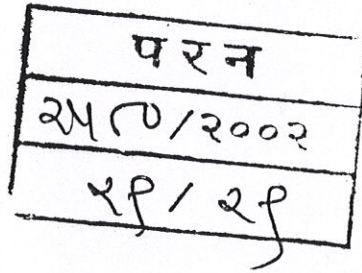 प र न
२५८७/२००२
२९/२९